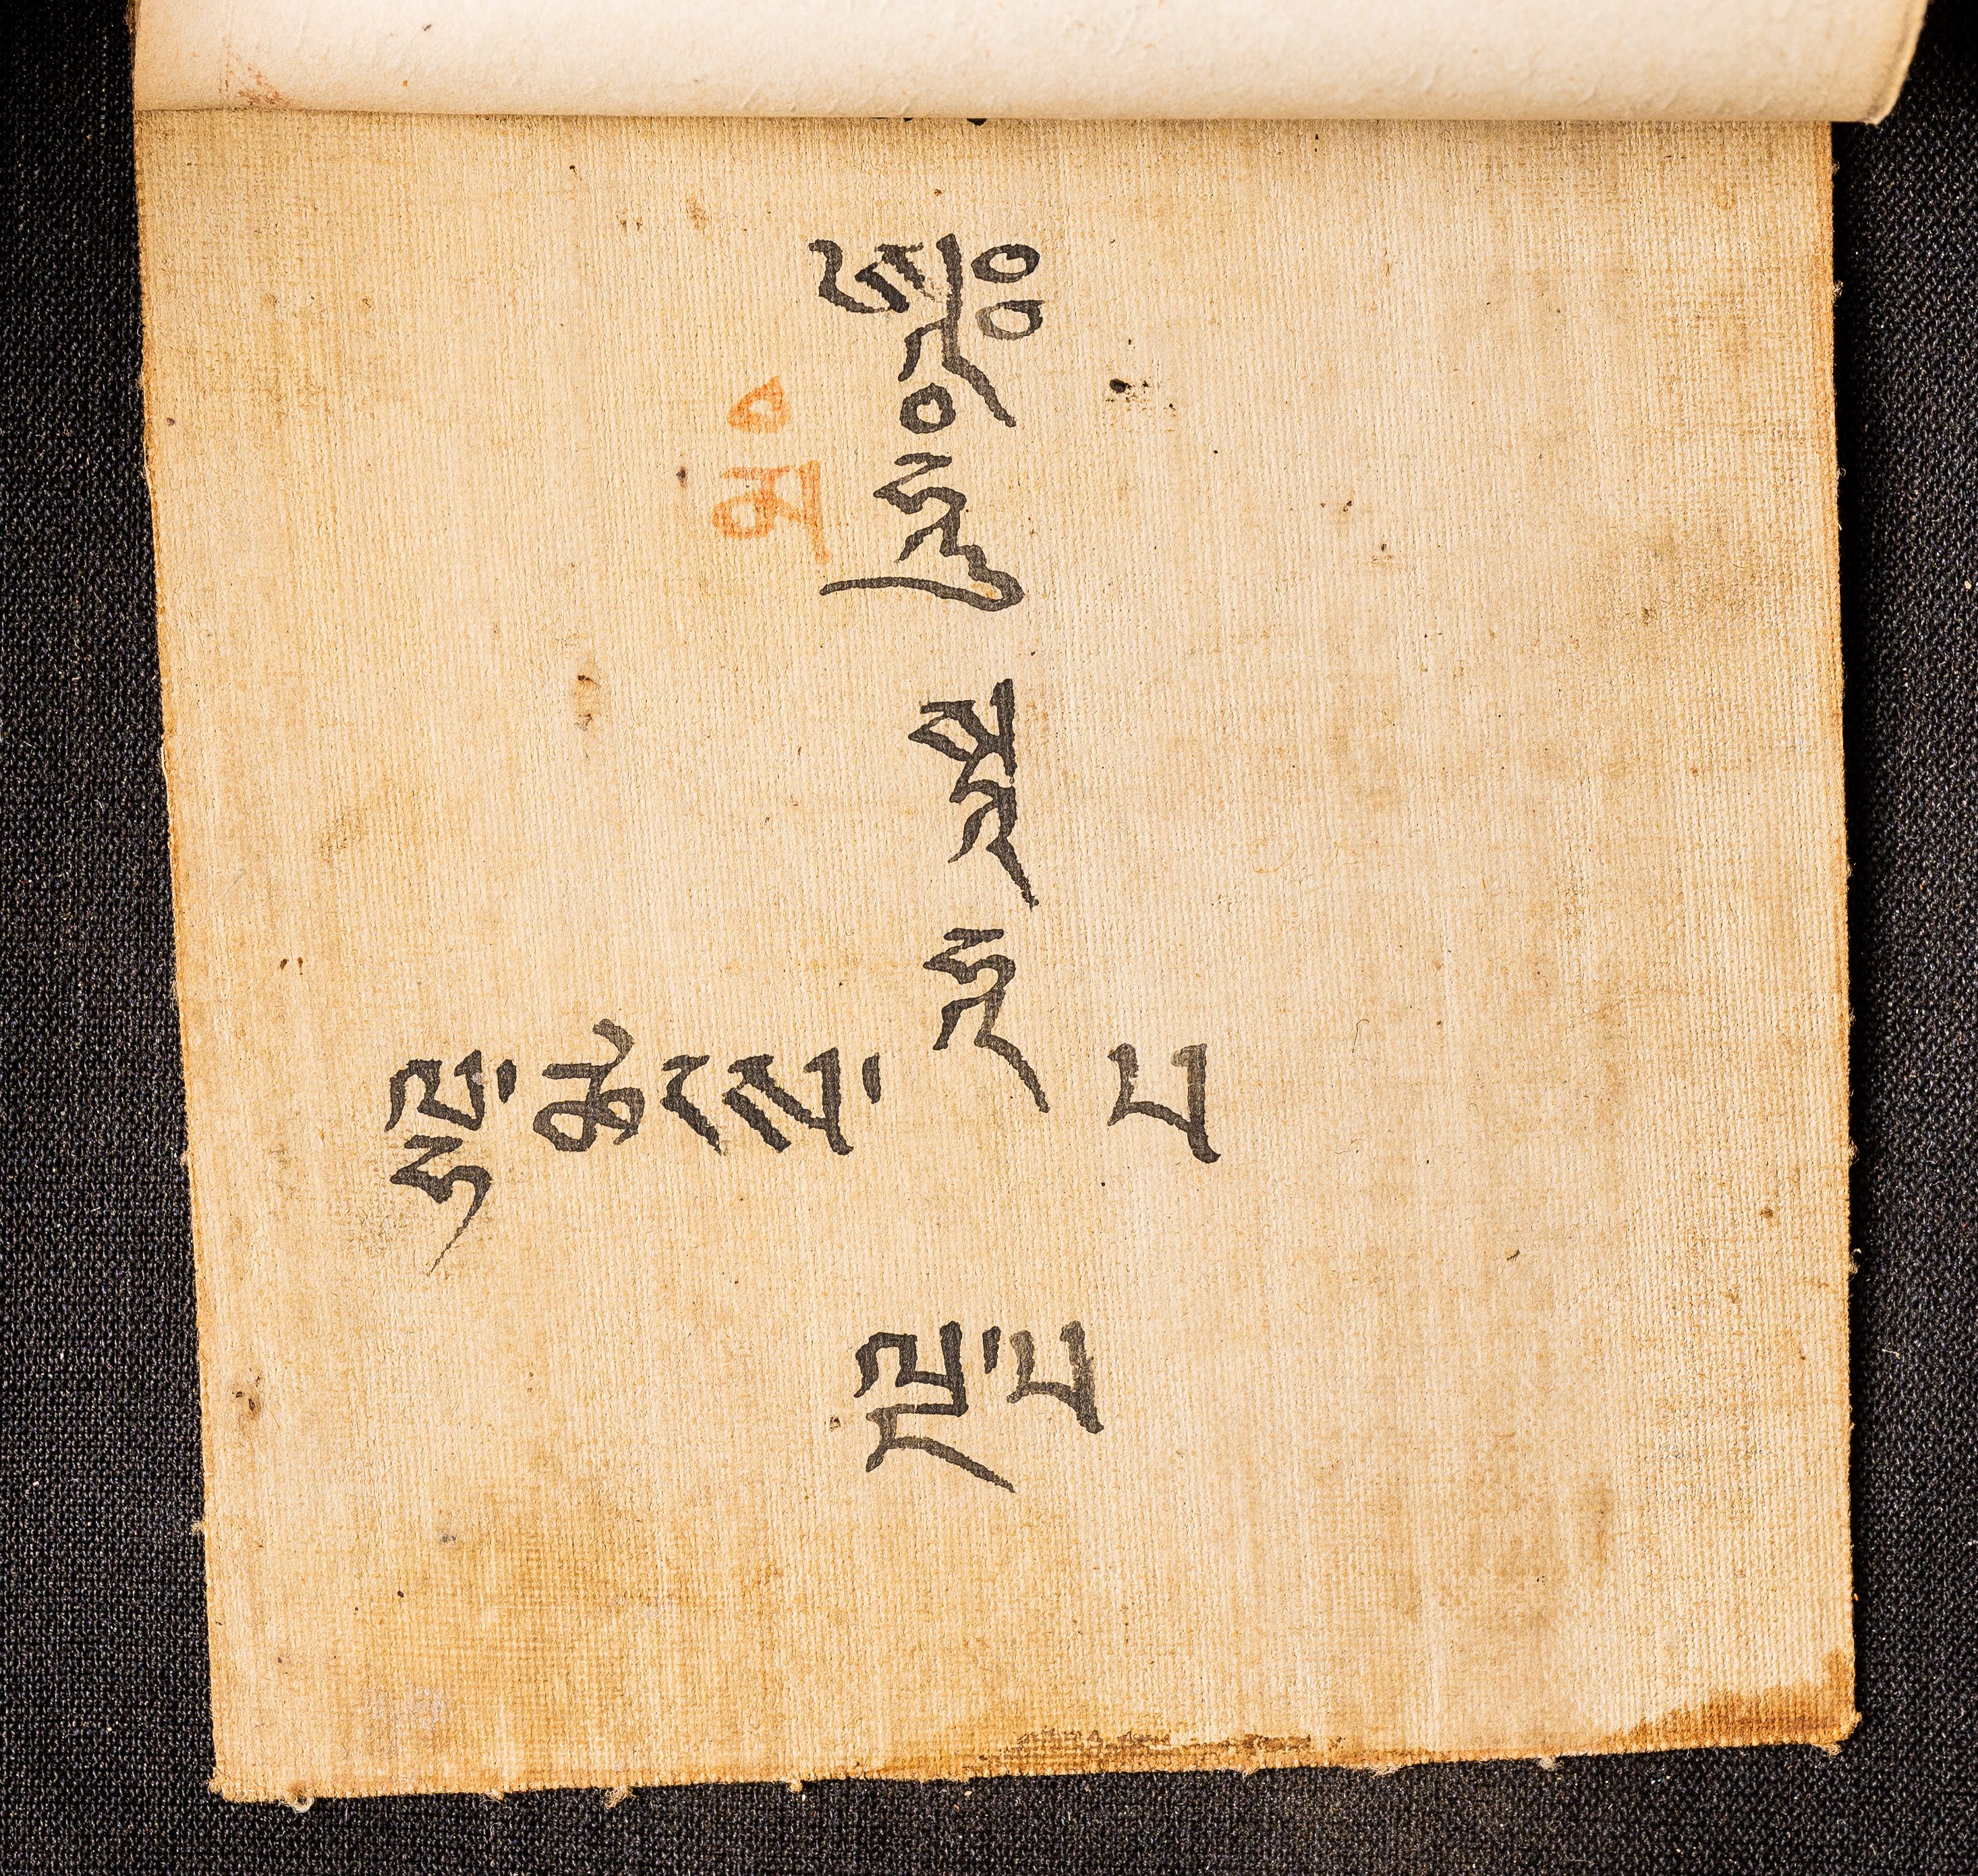 ཨཱཿ
མཾ
ཧཱུཾ
སྭཱ
ཧཱ
ལྷ་ཚངས་ པ
ལྔ་པ